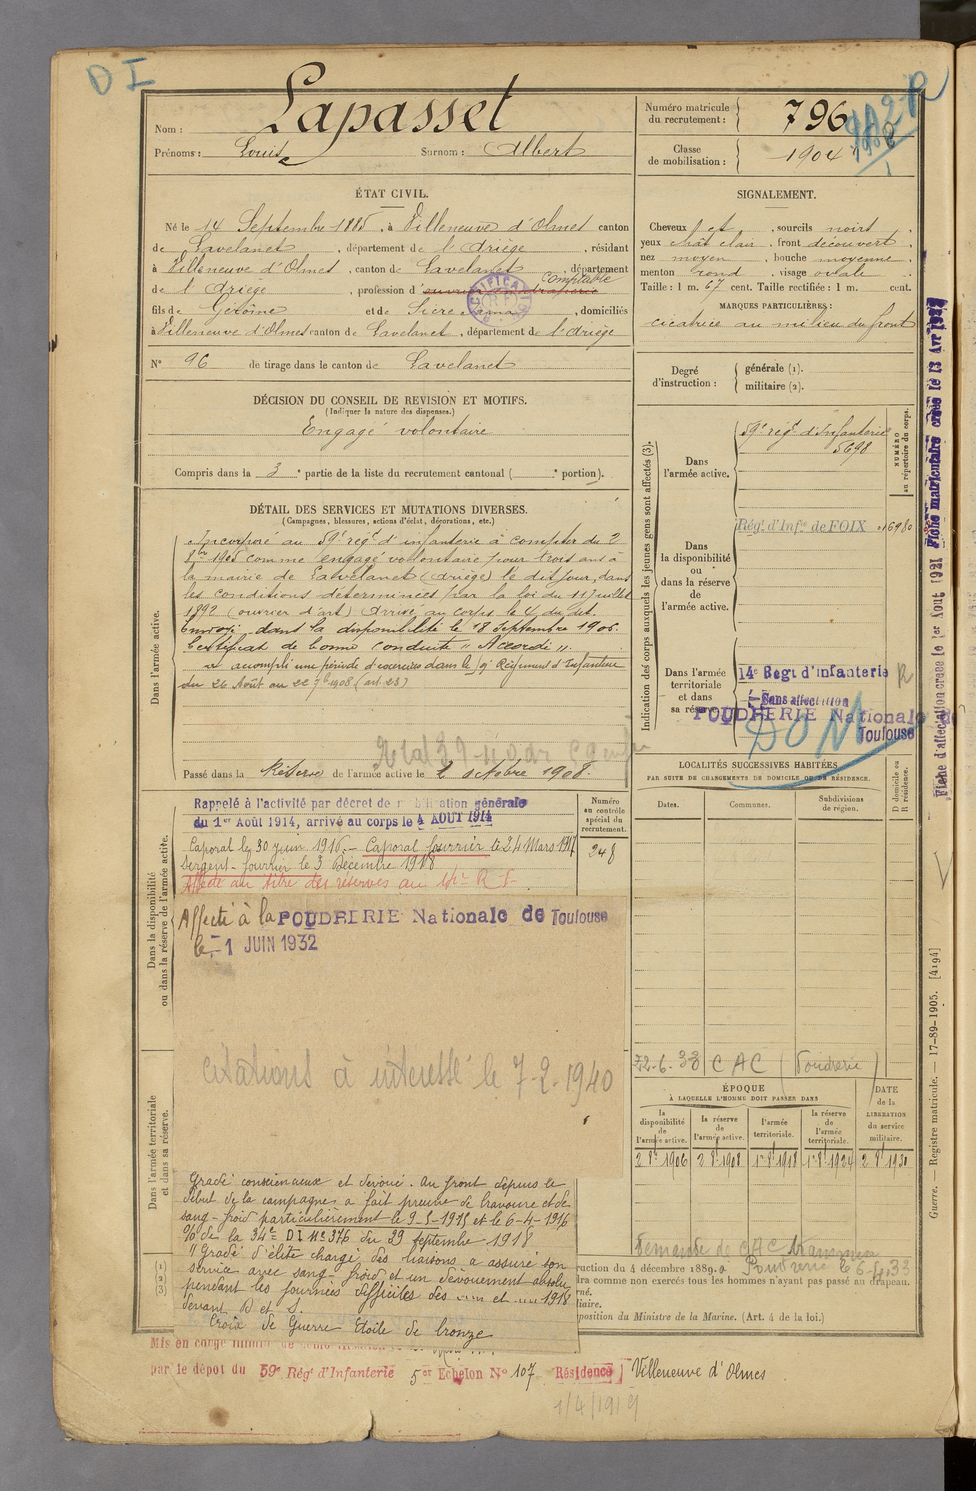 D I
Nom : Lapasset
Prénoms : Louis Surnom : Albert
Numéro matricule du recrutement : 796
Classe de mobilisation : 1904
ÉTAT CIVIL.
Né le 14 Septembre 1885, à Villeneuve d'Olmes canton
de Lavelanet, département de l'Ariège, résidant
à Villeneuve d'Olmes, canton de Lavelanet, département
de l'Ariège, profession d' comptable
fils de Gérôme et de Sicre, domiciliés
à Villeneuve d'Olmes canton de Lavelanet, département de l'Ariège
N° 96 de tirage dans le canton de Lavelanet
SIGNALEMENT.
Cheveux, sourcils noirs,
yeux chat clair, front découvert,
nez moyen, bouche moyenne,
menton rond, visage ovale.
Taille : 1 m. 67 cent. Taille rectifiée : 1 m. cent.
MARQUES PARTICULIÈRES :
cicatrice au milieu du front
Degré d'instruction : générale (1).
militaire (2).
DÉCISION DU CONSEIL DE REVISION ET MOTIFS.
(Indiquer la nature des dispenses.)
Engagé volontaire
Compris dans la 3e partie de la liste du recrutement cantonal ( e portion).
DÉTAIL DES SERVICES ET MUTATIONS DIVERSES.
(Campagnes, blessures, actions d'éclat, décorations, etc.)
Dans l'armée active.
Incorporé au 59e régt d'infanterie à compter du 2
8bre 1905 comme engagé volontaire pour trois ans à
la mairie de Lavelanet (Ariège) le dit jour, dans
les conditions déterminées par la loi du 11 juillet
1892 (ouvrier d'art) Arrivé au corps le 4 du dit.
Envoyé dans la disponibilité le 18 Septembre 1906.
Certificat de bonne conduite "Accordé".
a accompli une période d'exercices dans le 59e Régiment d'Infanterie
du 26 Août au 22 7bre 1908 (art. 23)
Passé dans la Réserve de l'armée active le 2 octobre 1908.
Indication des corps auxquels les jeunes gens sont affectés (3).
NUMÉRO au répertoire du corps.
Dans l'armée active.
59e régt d'Infanterie
5698
Dans la disponibilité ou dans la réserve de l'armée active.
Régt d'Infie de FOIX
Dans l'armée territoriale et dans sa réserve.
14e Regt d'infanterie R
Sans affectation
POUDRERIE Nationale de
Toulouse
DOM
Fiche d'affectation créée le 1er Aout 1921 Fiche matriculaire créée le 13 Avr
LOCALITÉS SUCCESSIVES HABITÉES
PAR SUITE DE CHANGEMENTS DE DOMICILE OU DE RÉSIDENCE.
Dates. Communes. Subdivisions de région. D domicile ou R résidence.
CAC (Poudrerie)
Dans la disponibilité ou dans la réserve de l'armée active.
Rappelé à l'activité par décret de mobilisation générale
du 1er Août 1914, arrivé au corps le 4 AOUT 1914
Caporal le 30 juin 1916. — Caporal fourrier le 24 Mars 1917
Sergent-fourrier le 3 Décembre 1918
Affecté au titre des réserves au 14e R I
Numéro au contrôle spécial du recrutement.
248
Affecté à la POUDRERIE Nationale de Toulouse
le 1 JUIN 1932
citations à intéressé le 7-2-1940
Dans l'armée territoriale et dans sa réserve.
ÉPOQUE
À LAQUELLE L'HOMME DOIT PASSER DANS
la disponibilité de l'armée active. la réserve de l'armée active. l'armée territoriale. la réserve de l'armée territoriale. DATE de la LIBÉRATION du service militaire.
2 8bre 1906 2 8bre 1908 1er 8bre 1918 1er 8bre 1924 2 8bre 1930
Gradé consciencieux et dévoué. Au front depuis le
début de la campagne a fait preuve de bravoure et de
sang-froid particulièrement le 9-5-1915 et le 6-4-1916
de la 34e DI N° 376 du 29 septembre 1918
"Gradé d'élite chargé des liaisons a assuré son
service avec sang-froid et un dévouement absolu
pendant les journées difficiles des et 1918
devant D et S.
Croix de Guerre Etoile de bronze
Demande de CAC
ruction du 4 décembre 1889.
dra comme non exercés tous les hommes n'ayant pas passé au drapeau.
position du Ministre de la Marine. (Art. 4 de la loi.)
(1)
(2)
(3)
par le dépôt du 59e Régt d'Infanterie 5e Echelon N° 107 Résidence Villeneuve d'Olmes
1/4/1919
Guerre. — Registre matricule. — 17-89-1905. [4194]